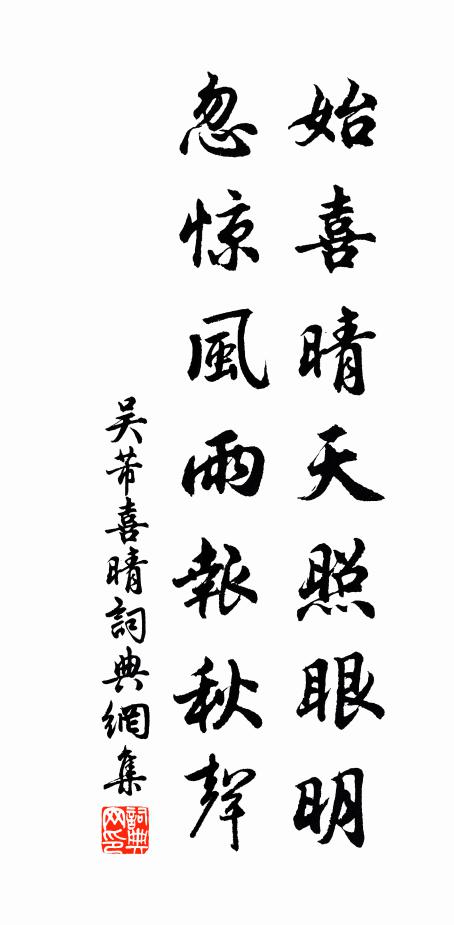 始喜晴天照眼明
忽惊風雨報秋聲
吴芾喜晴詞典網集
詞典网印